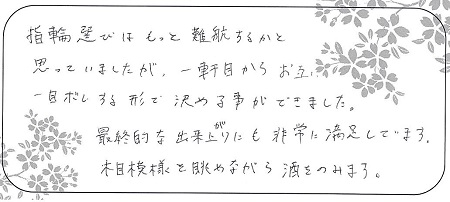 指輪選びはもっと難航するかと
思っていましたが、一軒目からお互い
一目ボレする形で決める事ができました。
最終的な出来上がりにも非常に満足しています。
木目模様を眺めながら酒をのみます。